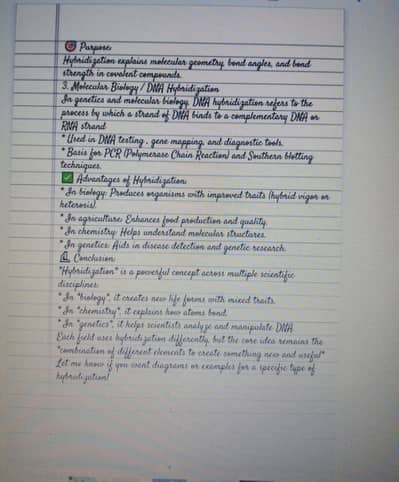 🎯 Purpose:
Hybridization explains molecular geometry, bond angles, and bond
strength in covalent compounds.
3. Molecular Biology / DNA Hybridization
In genetics and molecular biology, DNA hybridization refers to the
process by which a strand of DNA binds to a complementary DNA or
RNA strand.
* Used in DNA testing, gene mapping, and diagnostic tools.
* Basis for PCR (Polymerase Chain Reaction) and Southern blotting
techniques.
✅ Advantages of Hybridization:
* In biology: Produces organisms with improved traits (hybrid vigor or
heterosis).
* In agriculture: Enhances food production and quality.
* In chemistry: Helps understand molecular structures.
* In genetics: Aids in disease detection and genetic research.
Conclusion:
"Hybridization" is a powerful concept across multiple scientific
disciplines:
* In "biology", it creates new life forms with mixed traits.
* In "chemistry", it explains how atoms bond.
* In "genetics", it helps scientists analyze and manipulate DNA.
Each field uses hybridization differently, but the core idea remains the
"combination of different elements to create something new and useful"
Let me know if you want diagrams or examples for a specific type of
hybridization!